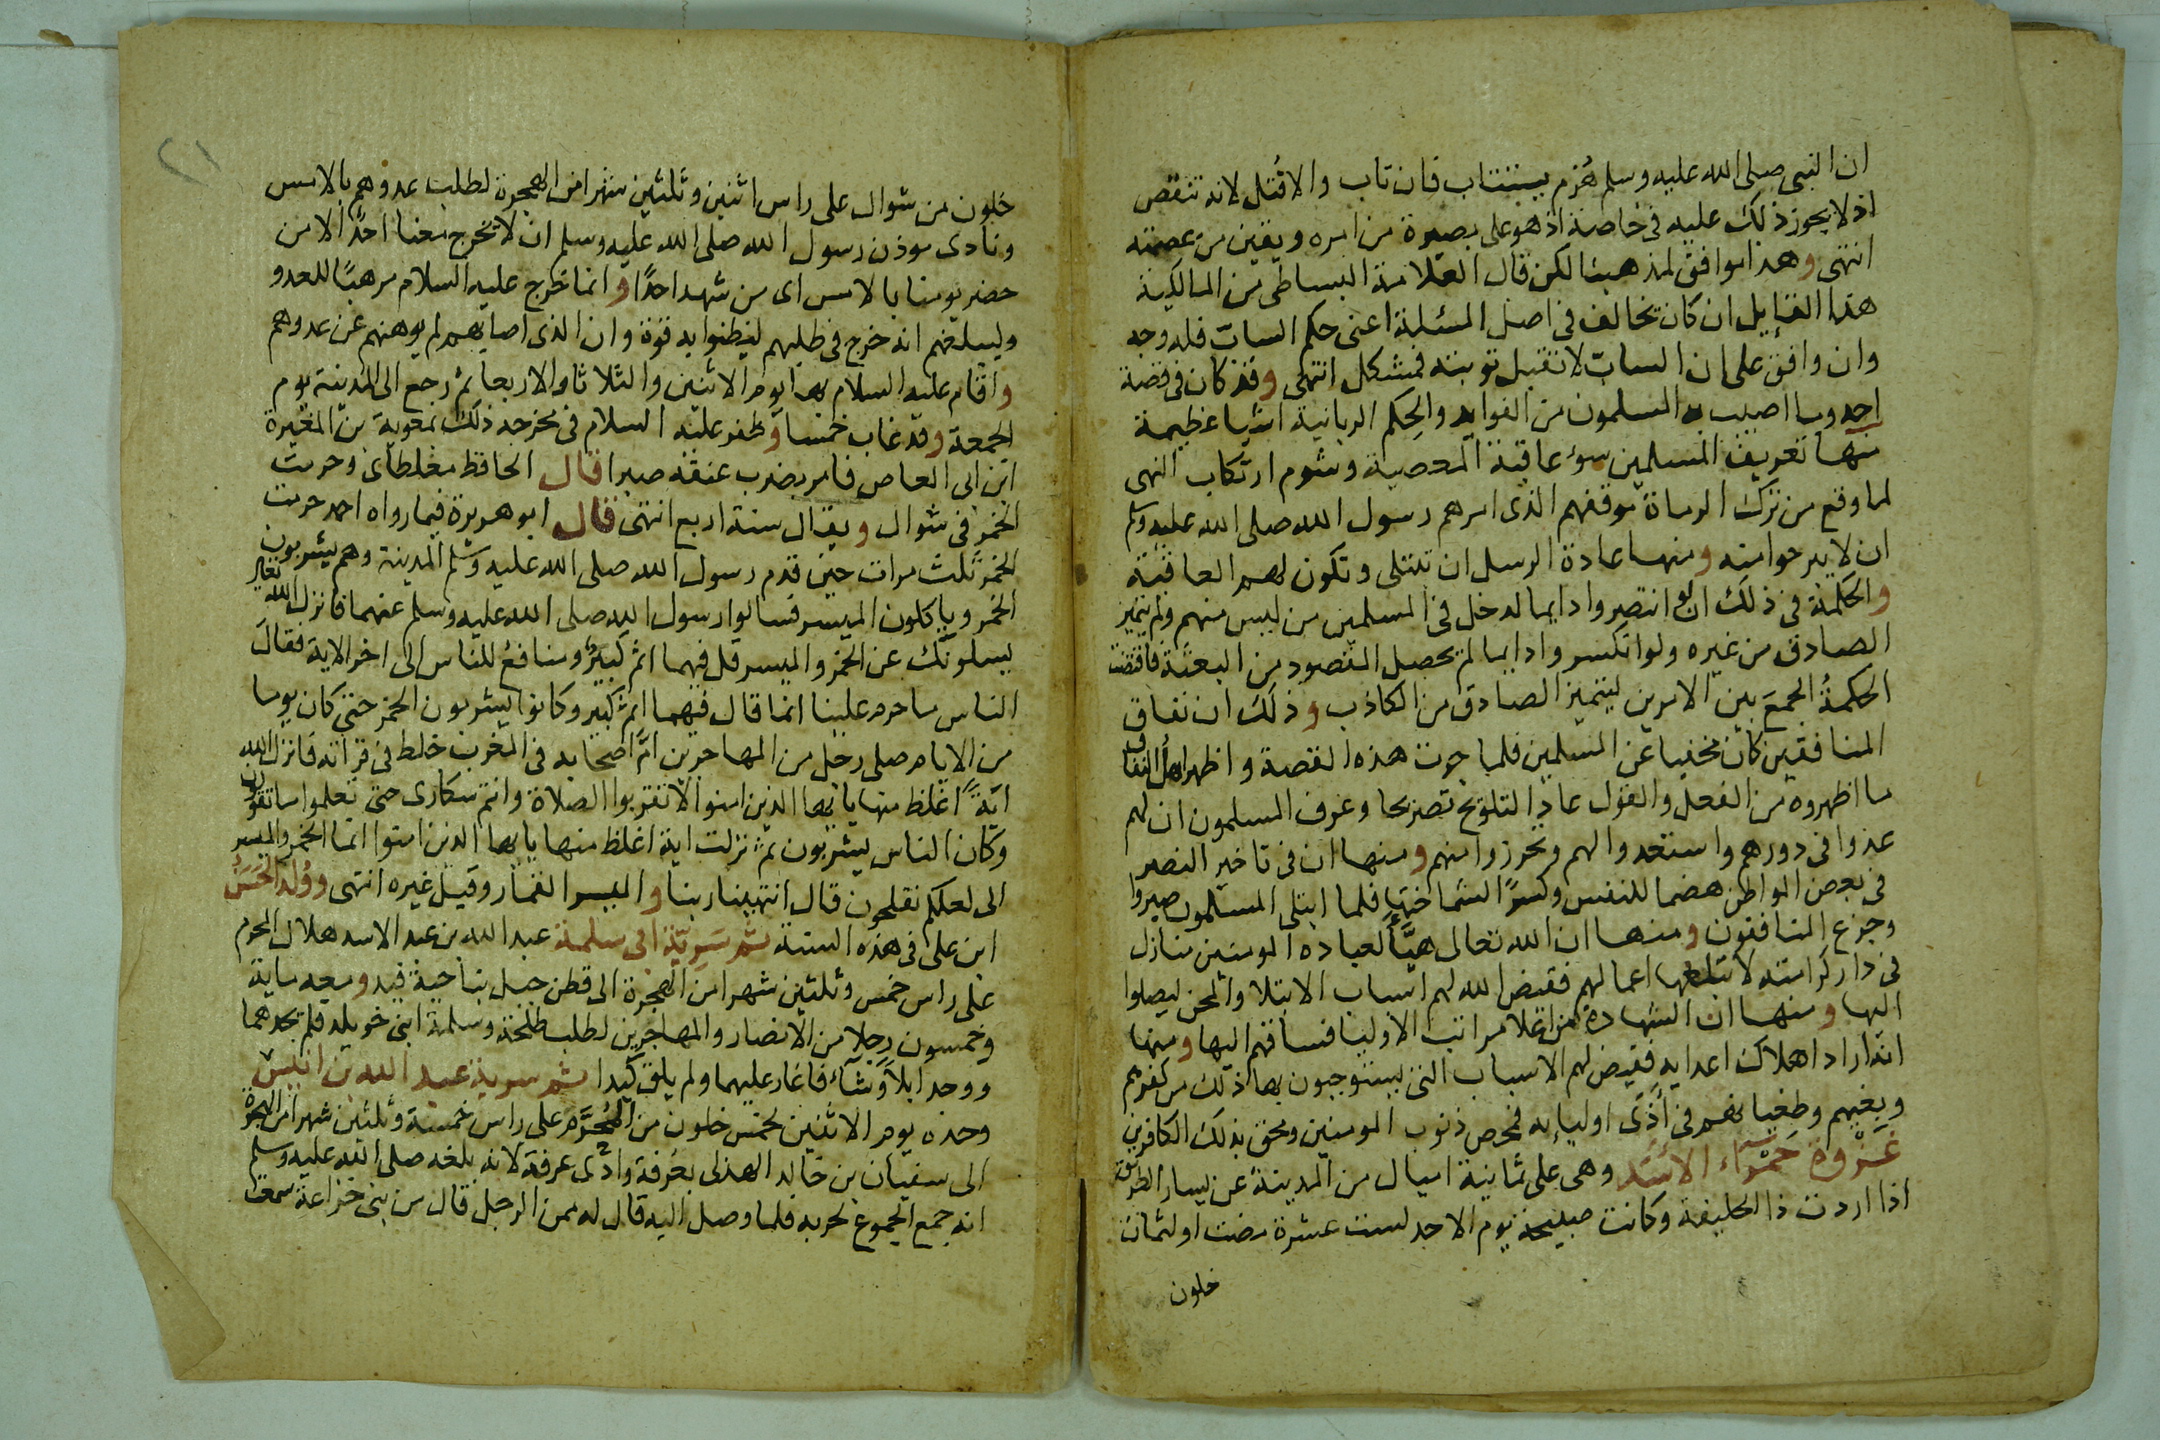 ان النبي صلى الله عليه وسلم هُزم يستتاب فان تاب والاقُتل لانه تنقص
اذ لا يجوز ذلك عليه في خاصته اذ هو على بصيرة من امره ويقين من عصمته
انتهى وهذا موافق لمذهبنا لكن قال العلامة البساطي من المالكية
هذا القايل ان كان يخالف في اصل المسئلة اعنى حكم السابّ فله وجه
وان وافق على ان السابّ لا تقبل توبته فمشكل انتهى وقد كان في قصة
احد وما اصيب به المسلمون من الفوايد والحِكم الربانية اشيا عظيمة
منها تعريف المسلمين سوء عاقبة المعصية وشوم ارتكاب النهى
لما وقع من ترك الرماة موقفهم الذى امرهم رسول الله صلى الله عليه وسلم
ان لا يبرحوا منه ومنها عادة الرسل ان تبتلى وتكون لهم العاقبة
والحكمة في ذلك ان لو انتصروا دايما لدخل في المسلمين من ليس منهم ولم يتميز
الصادق من غيره ولو انكسروا دايما لم يحصل المقصود من البعثة فاقتضت
الحكمةُ الجمعَ بين الامرين ليتميز الصادق من الكاذب وذلك ان نفاق
المنافقين كان مخفيا عن المسلمين فلما جرت هذه القصة واظهر اهل النفاق
ما اظهروه من الفعل والقول عاد التلويح تصريحا وعرف المسلمون ان لهم
عدوا في دورهم واستعدوا لهم وتحرزوا منهم ومنها ان في تاخير النصر
في بعض المواطن هضما للنفس وكسرًا لشماختها فلما ابتلى المسلمون صبروا
وجزع المنافقون ومنها ان الله تعالى هيَّأ لعباده المومنين منازل
في دار كرامته لا تبلغها اعمالهم فقيض الله لهم اسباب الابتلا والمحن ليصلوا
اليها ومنها ان الشهادة من اعلا مراتب الاوليا فساقهم اليها ومنها
انه اراد اهلاك اعدايه فقيض لهم الاسباب التى يستوجبون بها ذلك من كفرهم
وبغيهم وطغيانهم في أذَى اوليايه فمحص ذنوب المومنين ومحق بذلك الكافرين
غزوة حمرآء الاسد وهى على ثمانية اميال من المدينة عن يسار الطريق
اذا اردت ذا الحليفة وكانت صبيحة يوم الاحد لست عشرة مضت اولثمان
خلون
٢١
خلون من شوال على راس اثنين وثلثين شهرا من الهجرة لطلب عدوهم بالامس
ونادى موذن رسول الله صلى الله عليه وسلم ان لا يخرج معنا احدٌ الا من
حضر يومنا بالامس اى من شهد احدًا وانما خرج عليه السلام مرهبًا للعدو
وليبلغهم انه خرج في طلبهم ليظنوا به قوة وان الذى اصابهم لم يوهنهم عن عدوهم
واقام عليه السلام بها يوم الاثنين والثلاثا والاربعا ثم رجع الى المدينة يوم
الجمعة وقد غاب خمسا وظفر عليه السلام في مخرجه ذلك بمعوية بن المغيرة
ابن ابى العاص فامر بضرب عنقه صبرا قال الحافظ مغلطاى وحرمت
الخمر في شوال ويقال سنة اربع انتهى قال ابو هريرة فيما رواه احمد حرمت
الخمر ثلث مرات حين قدم رسول الله صلى الله عليه وسلم المدينة وهم يشربون
الخمر وياكلون الميسر فسالوا رسول الله صلى الله عليه وسلم عنهما فانزل الله
يسلونك عن الخمر والميسر قل فيهما اثم كبير ومنافع للناس الى اخر الاية فقال
الناس ما حرم علينا انما قال فيهما اثم كبير وكانوا يشربون الخمر حتى كان يوما
من الايام صلى رجل من المهاجرين امَّ اصحابه في المغرب خلط في قراته فانزل الله
ايةً اغلظ منها يايها الذين امنوا لا تقربوا الصلاة وانتم سكارى حتى تعلموا ما تقولون
وكان الناس يشربون ثم نزلت اية اغلظ منها يايها الذين امنوا انما الخمر والميسر
الى لعلكم تفلحون قال انتهينا ربنا والميسر القمار وقيل غيره انتهى وولد الحسن
ابن على في هذه السنة ثم سرية ابى سلمة عبد الله بن عبد الاسد هلال المحرم
على راس خمس وثلثين شهرا من الهجرة الى قطن جبل بناحية فيد ومعه ماية
وخمسون رجلا من الانصار والمهاجرين لطلب طلحة وسلمة ابنى خويلد فلم يجدهما
ووجد ابلاً وشآء فاغار عليهما ولم يلق كيدا ثم سرية عبد الله بن انيس
وحده يوم الاثنين لخمس خلون من المحرّم على راس خمسة وثلثين شهرا من الهجرة
الى سفيان بن خالد الهذلى بعُرفة وادى عرفة لانه بلغه صلى الله عليه وسلم
انه جمع الجموع لحربه فلما وصل اليه قال له ممن الرجل قال من بنى خزاعة سمعت